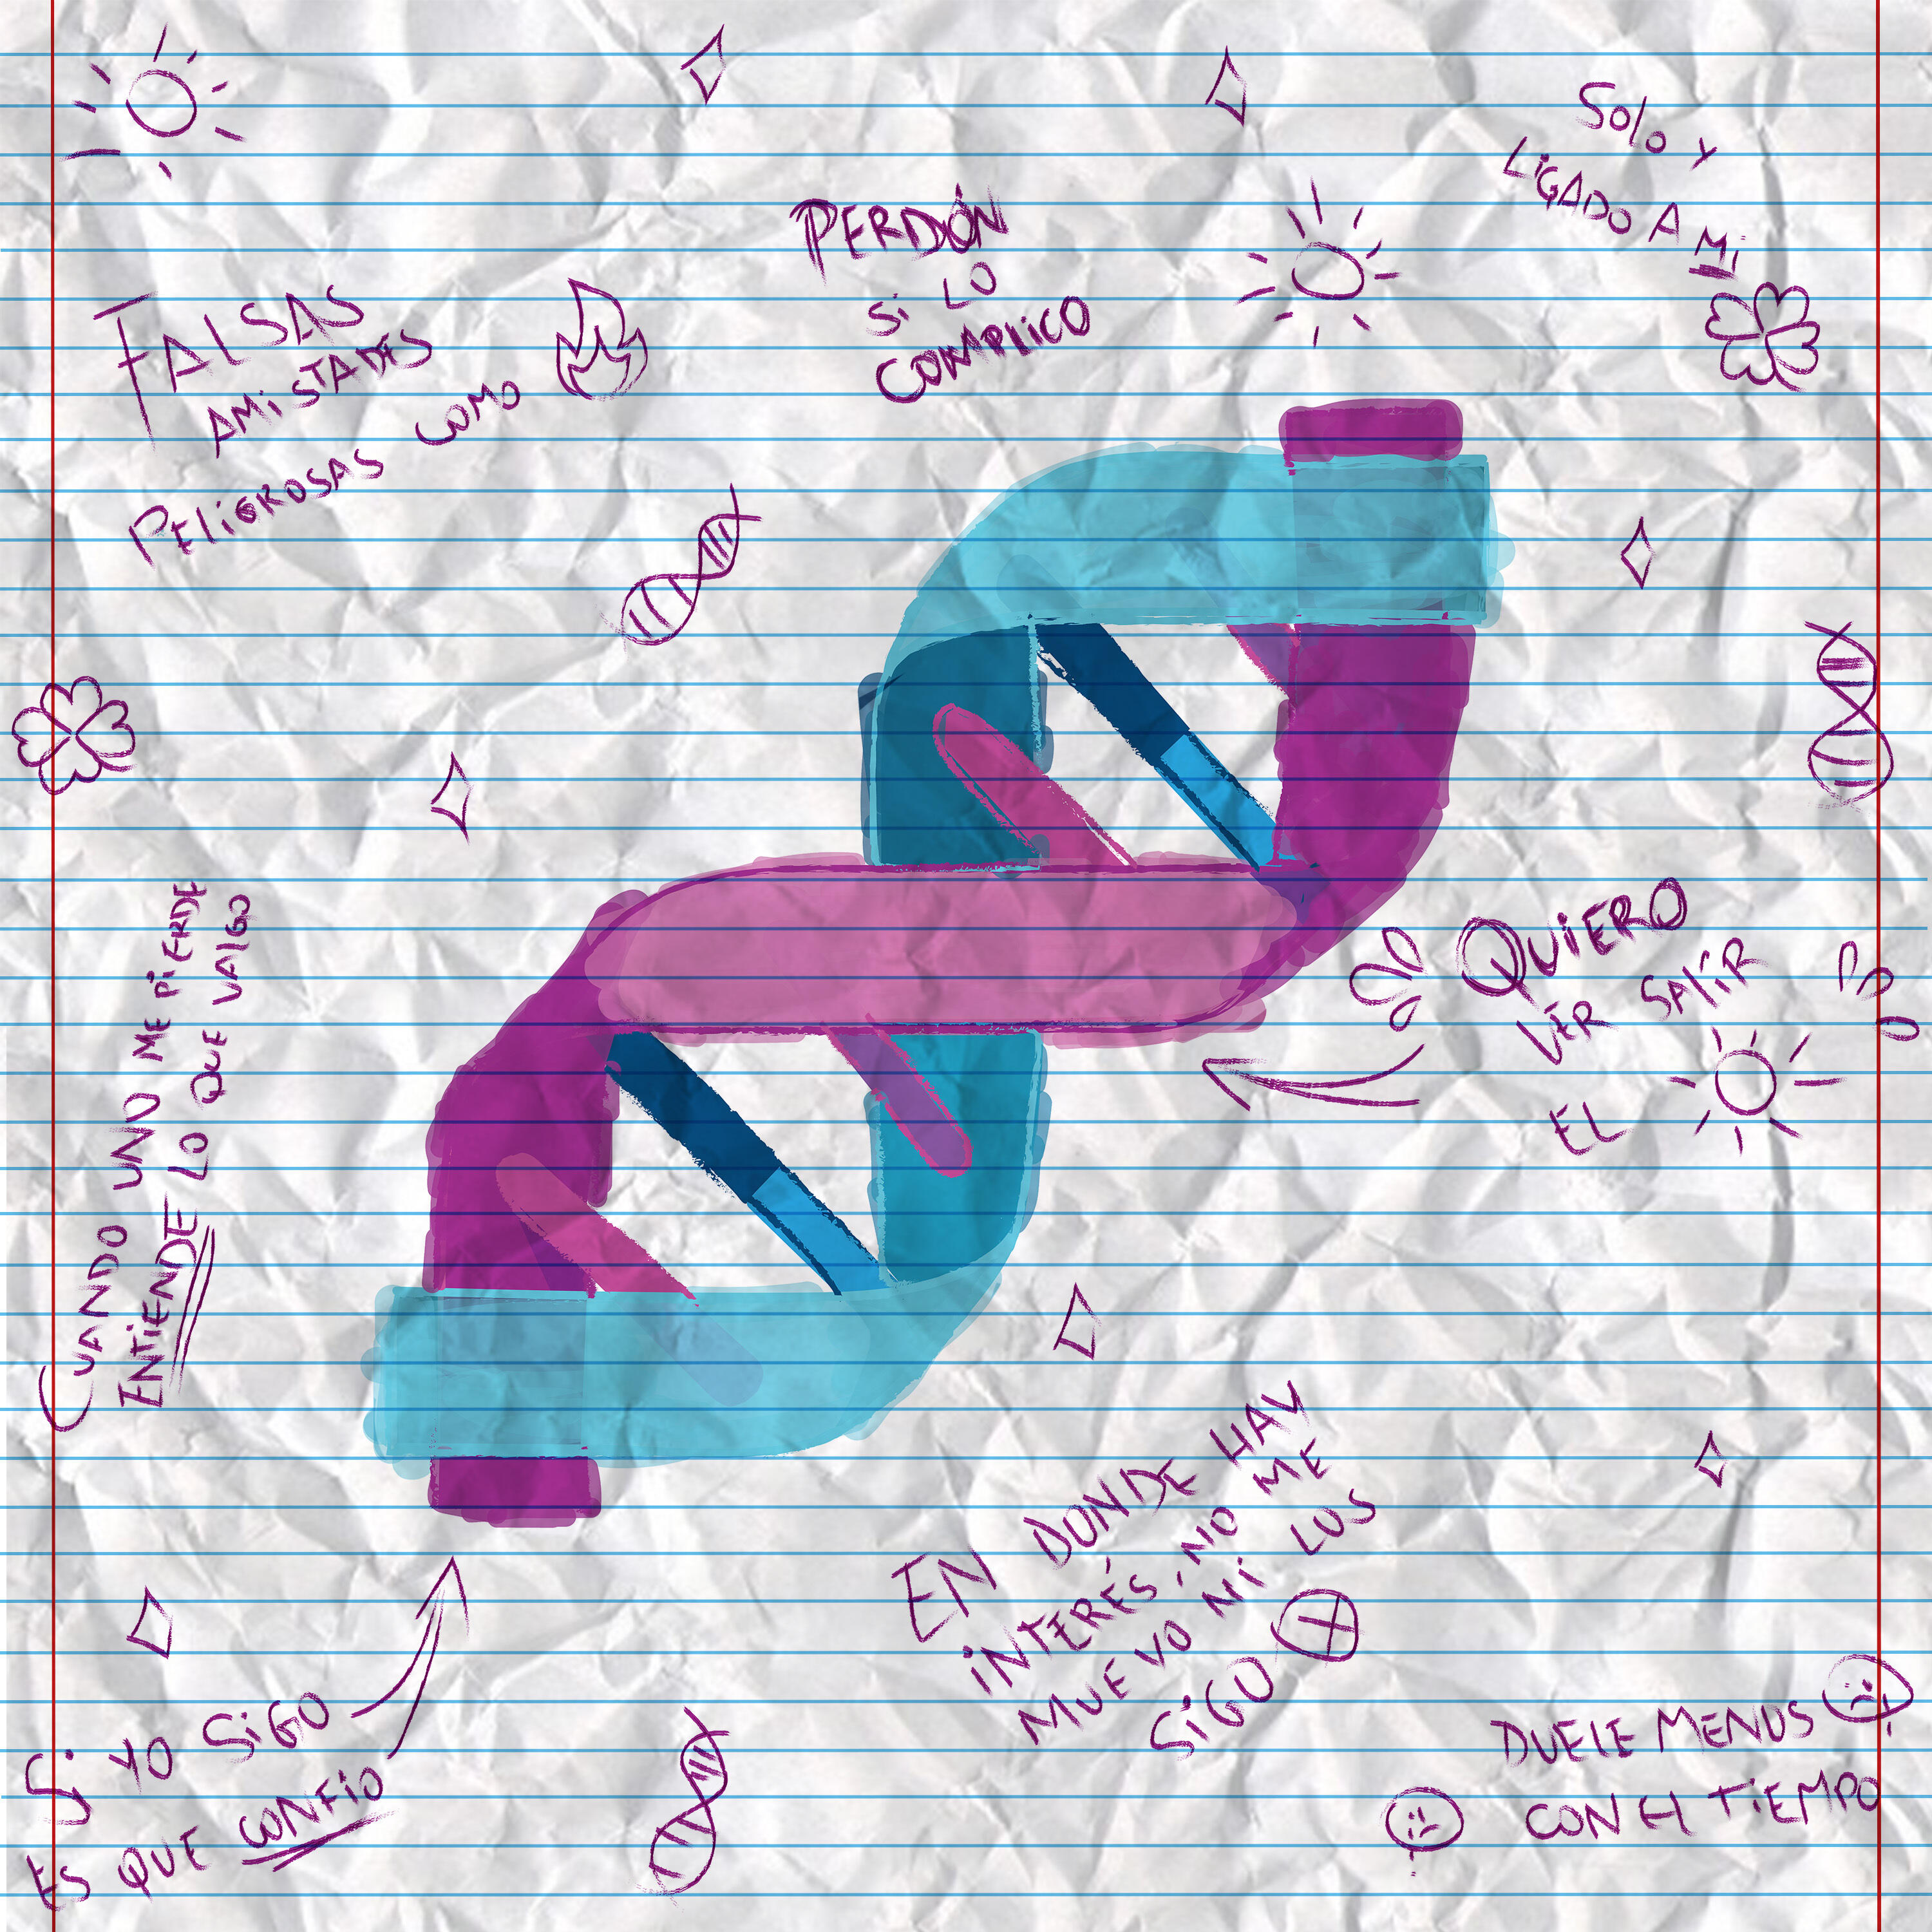 Solo y
LiGADO A Mi
PERDÓN
Si LO
COMPLICO
FALSAS
AMiSTADES
PELIGROSAS COMO
CUANDO UNO ME PIERDE
ENTIENDE LO QUE VALGO
QUIERO
VER SALIR
EL
EN DONDE HAY
INTERÉS, NO ME
MUEVO NI LOS
SIGO
Si YO SiGO
ES QUE CONFÍO
DUELE MENOS
CON EL TIEMPO